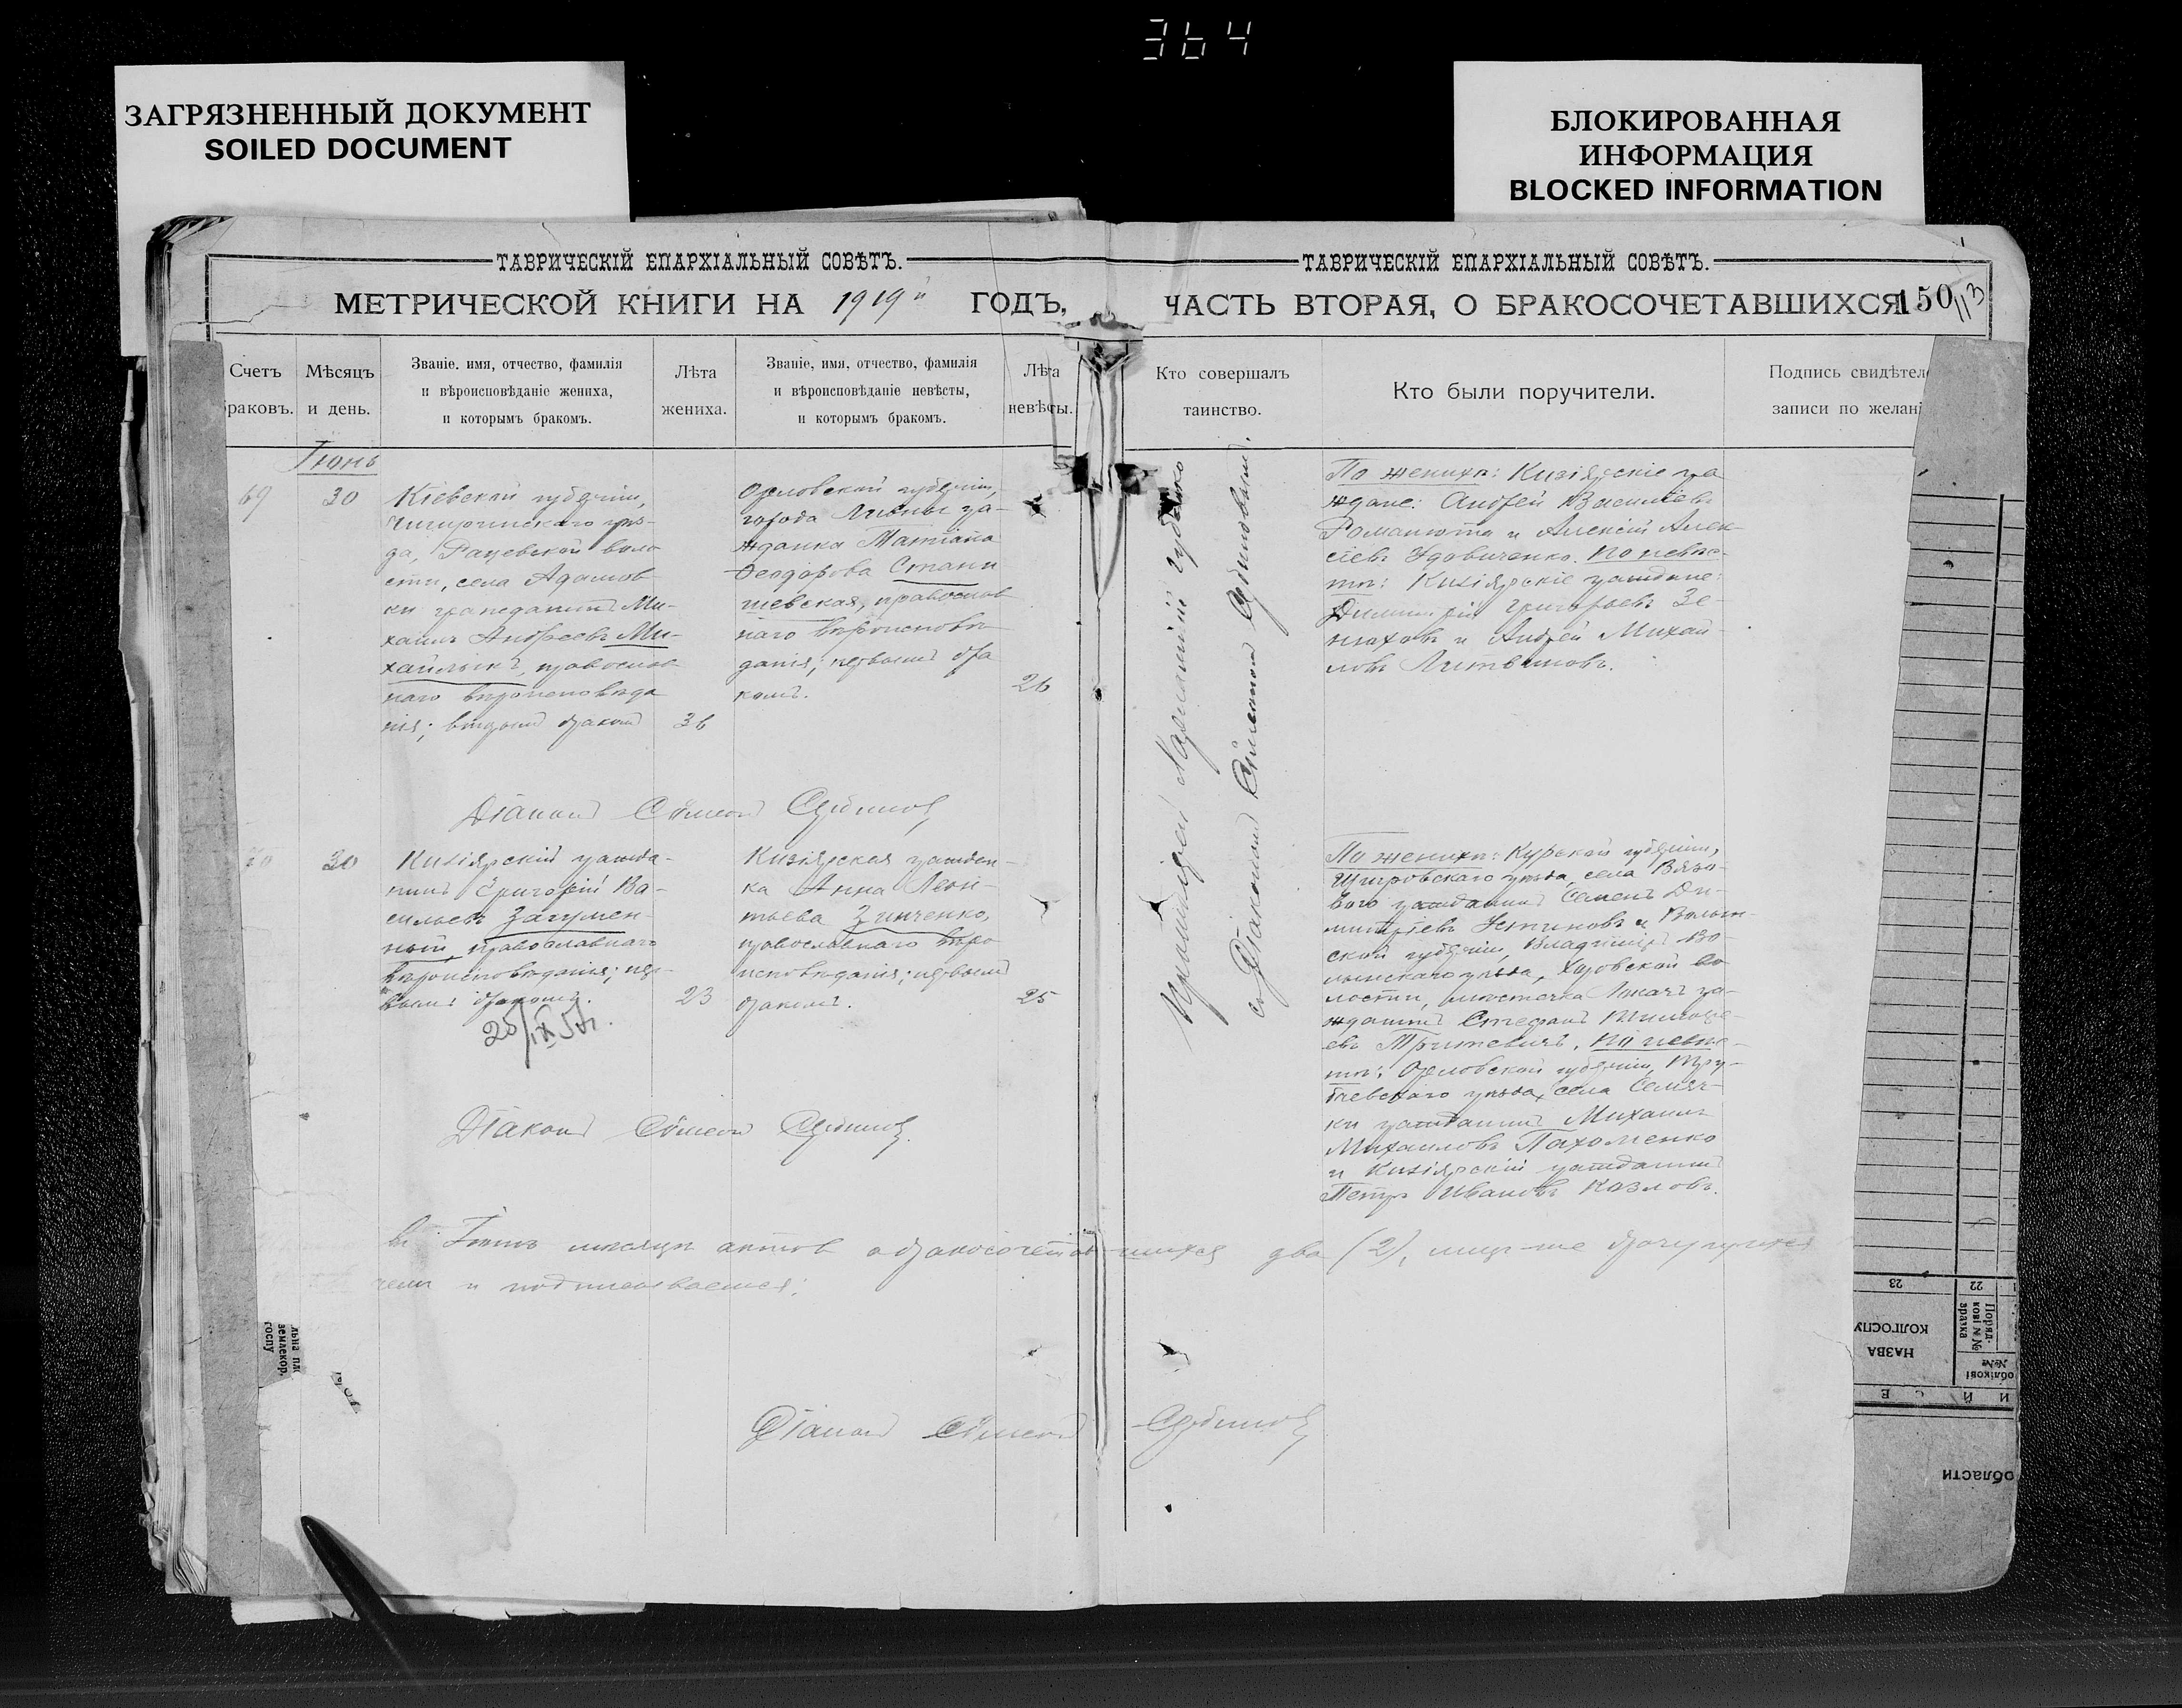 364
ЗАГРЯЗНЕННЫЙ ДОКУМЕНТ
SOILED DOCUMENT
БЛОКИРОВАННАЯ
ИНФОРМАЦИЯ
BLOCKED INFORMATION
ТАВРИЧЕСКІЙ ЕПАРХІАЛЬНЫЙ СОВѢТЪ.
МЕТРИЧЕСКОЙ КНИГИ НА 1919й ГОДЪ,
ТАВРИЧЕСКІЙ ЕПАРХІАЛЬНЫЙ СОВѢТЪ.
ЧАСТЬ ВТОРАЯ, О БРАКОСОЧЕТАВШИХСЯ
150
113
Счетъ
браковъ.
Мѣсяцъ
и день.
Званіе. имя, отчество, фамилія
и вѣроисповѣданіе жениха,
и которымъ бракомъ.
Лѣта
жениха.
Званіе, имя, отчество, фамилія
и вѣроисповѣданіе невѣсты,
и которымъ бракомъ.
Лѣта
невѣсты.
Кто совершалъ
таинство.
Кто были поручители.
Подпись свидѣтел
записи по желан
Іюнь
69
30
Кіевской губерніи,
Чигиринскаго уѣз-
да, Рацевской воло
сти, села Адамов
ки гражданинъ Ми-
хаилъ Андреевъ Ми-
хайлыкъ, православ
наго вѣроисповѣда
нія; вторымъ бракомъ
36
Орловской губерніи,
города Ливны гра-
жданка Татіана
Ѳеодорова Стани
шевская, православ
наго вѣроисповѣ
данія; первымъ бра
комъ.
26
По женихѣ: Кизіярскіе гра
ждане: Андрей Васильевъ
Романюта и Алексій Алек
сіевъ Удовиченко. По невѣс-
тѣ: Кизіярскіе граждане:
Димитрій Григорьевъ
и Андрей Михай
ловъ Литвиновъ.
Діаконъ Сѵмеонъ
70
30
Кизіярскій гражда-
нинъ Григорій Ва-
сильевъ Загумен-
ный, православнаго
вѣроисповѣданія; пер-
вымъ бракомъ.
23
Кизіярская граждан-
ка Анна Леон-
тьева Зинченко,
православнаго вѣро
исповѣданія; первымъ
бракомъ.
25
По женихѣ: Курской губерніи,
Щигровскаго уѣзда, села Вязо-
ваго гражданинъ Семенъ Ди-
митріевъ Устиновъ и Волын-
ской губерніи, Владиміръ-Во
лынскаго уѣзда, во
лости, мѣстечка Локачъ гра-
жданинъ Стефанъ
евъ. По невѣс-
тѣ: Орловской губерніи, Труб-
чевскаго уѣзда, села Семяч-
ки гражданинъ Михаилъ
Михаиловъ Пахоменко
и Кизіярскій гражданинъ
Петръ Ивановъ Козловъ.
Діаконъ Сѵмеонъ
съ Діакономъ Сѵмеономъ
въ Іюнѣ мѣсяцѣ актовъ о бракосочетавшихся два (2),
и подписывается:
Діаконъ Сѵмеонъ
23
22
КОЛГОСПУ
НАЗВА
Поряд-
кові №№
зразка
облікові
№№
области